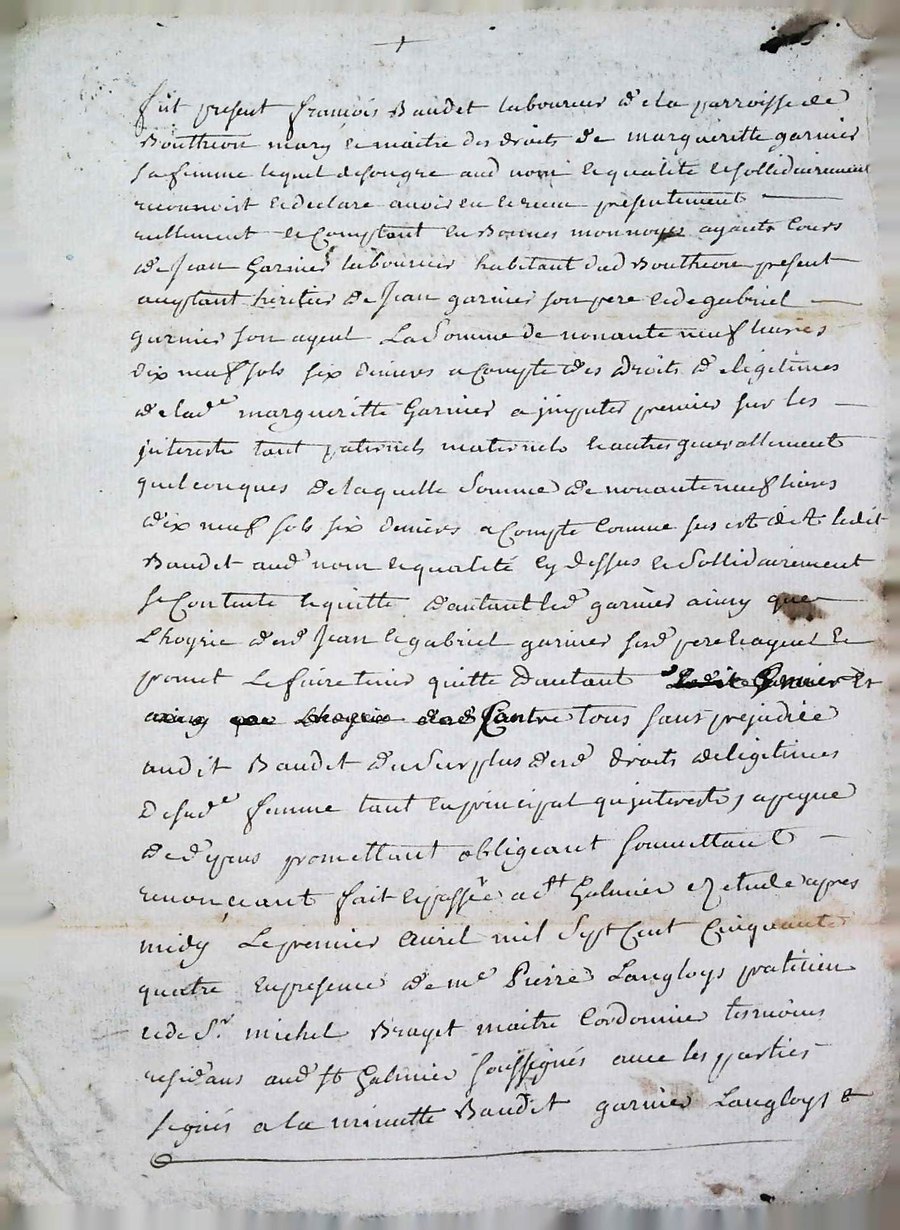 fut present françois Baudet laboureur de la parroisse de
Boutheon mary et maitre des droits de marguëritte garnier
sa femme lequel de son gre aud nom et qualité et sollidairement
reconnoist et declare avoir eu et receu presentement
reellement et Comptant en Bonnes monnoyes ayants Cours
de Jean Garnier laboureur habitant dud Boutheon present
acceptant héritier de Jean garnier son pere et de gabriel
garnier son ayeul La Somme de nonante neuf livres
dix neuf sols six deniers a Compte des droits de legitimes
de lad.e margueritte Garnier a jmputer premier sur les
jnterests tant paternels maternels et autres generallement
quelconques de laquelle Somme de nonante neuf livres
dix neuf sols six deniers a Compte Comme sus est dit ledit
Baudet aud nom et qualité cy dessus et Sollidairement
se Contente et quitte d'autant led garnier ainsy que
L'hoyrie desd Jean et gabriel garnier sesd pere et ayeul et
promet Le faire tenir quitte Dautant
Contre tous sans prejudice
audit Baudet du Surplus desd droits de legitimes
De sad.e femme tant en principal qu'jnterests, a peyne
de d'epens promettant obligeant soumettant
renonçeant fait et passé a St Galmier ez etude apres
midy Le premier avril mil Sept Cent Cinquante
quatre en presence de me Pierre Langloys praticien
et de Sr michel Brayet maitre Cordonnier tesmoins
residans aud St Galmier soussignés avec les parties
signés a la minutte Baudet garnier Langloys &